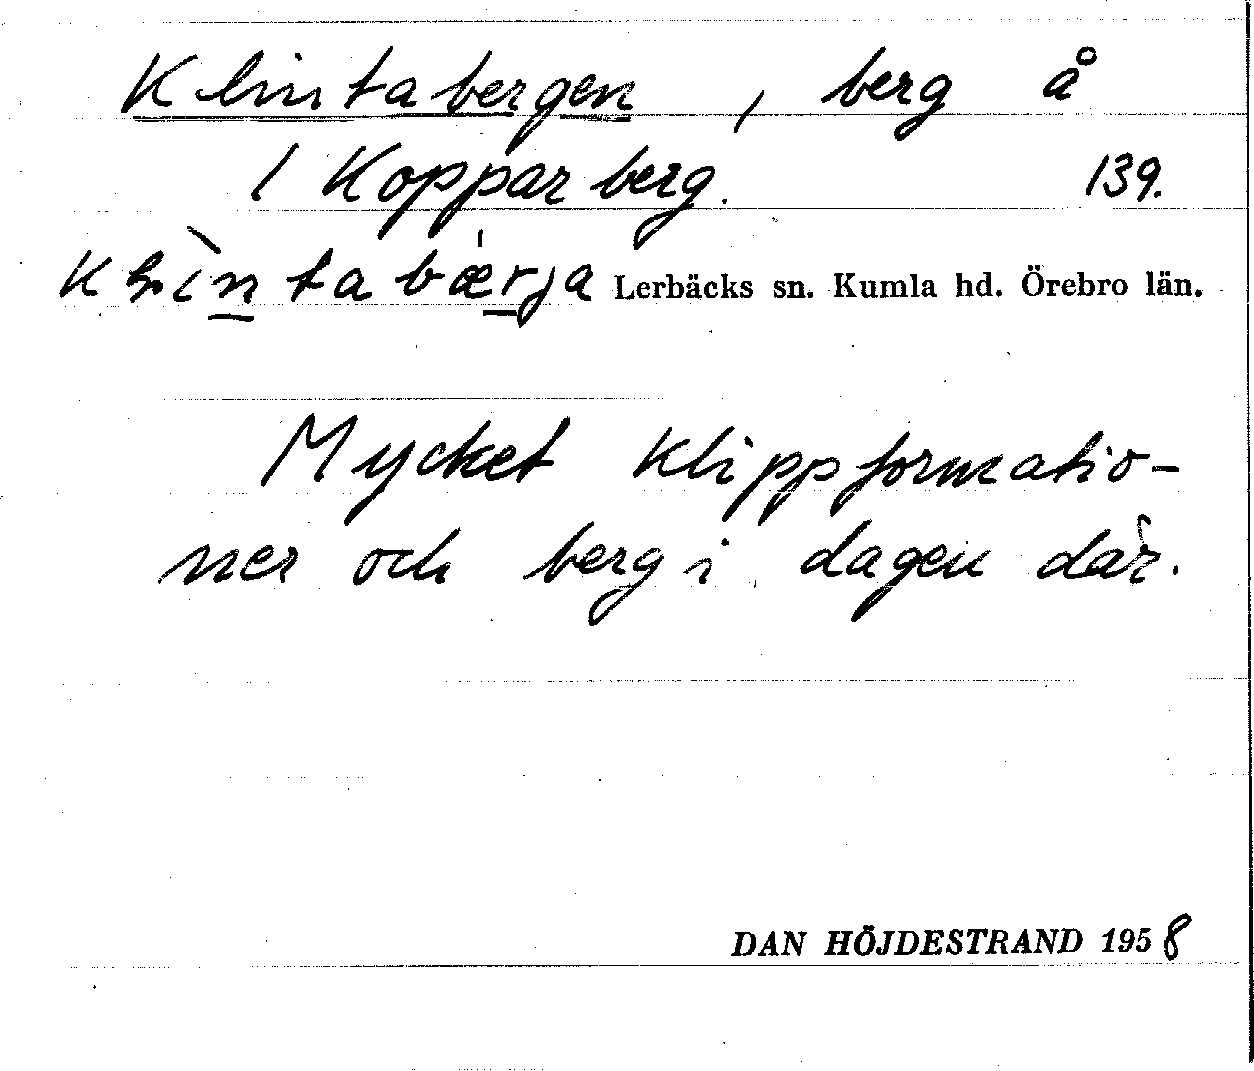 Klintabergen, berg å
1 Kopparberg. 139.
klìntabæ̀rja Lerbäcks sn. Kumla hd. Örebro län.
Mycket klippformatio-
ner och berg i dagen där.
DAN HÖJDESTRAND 1958